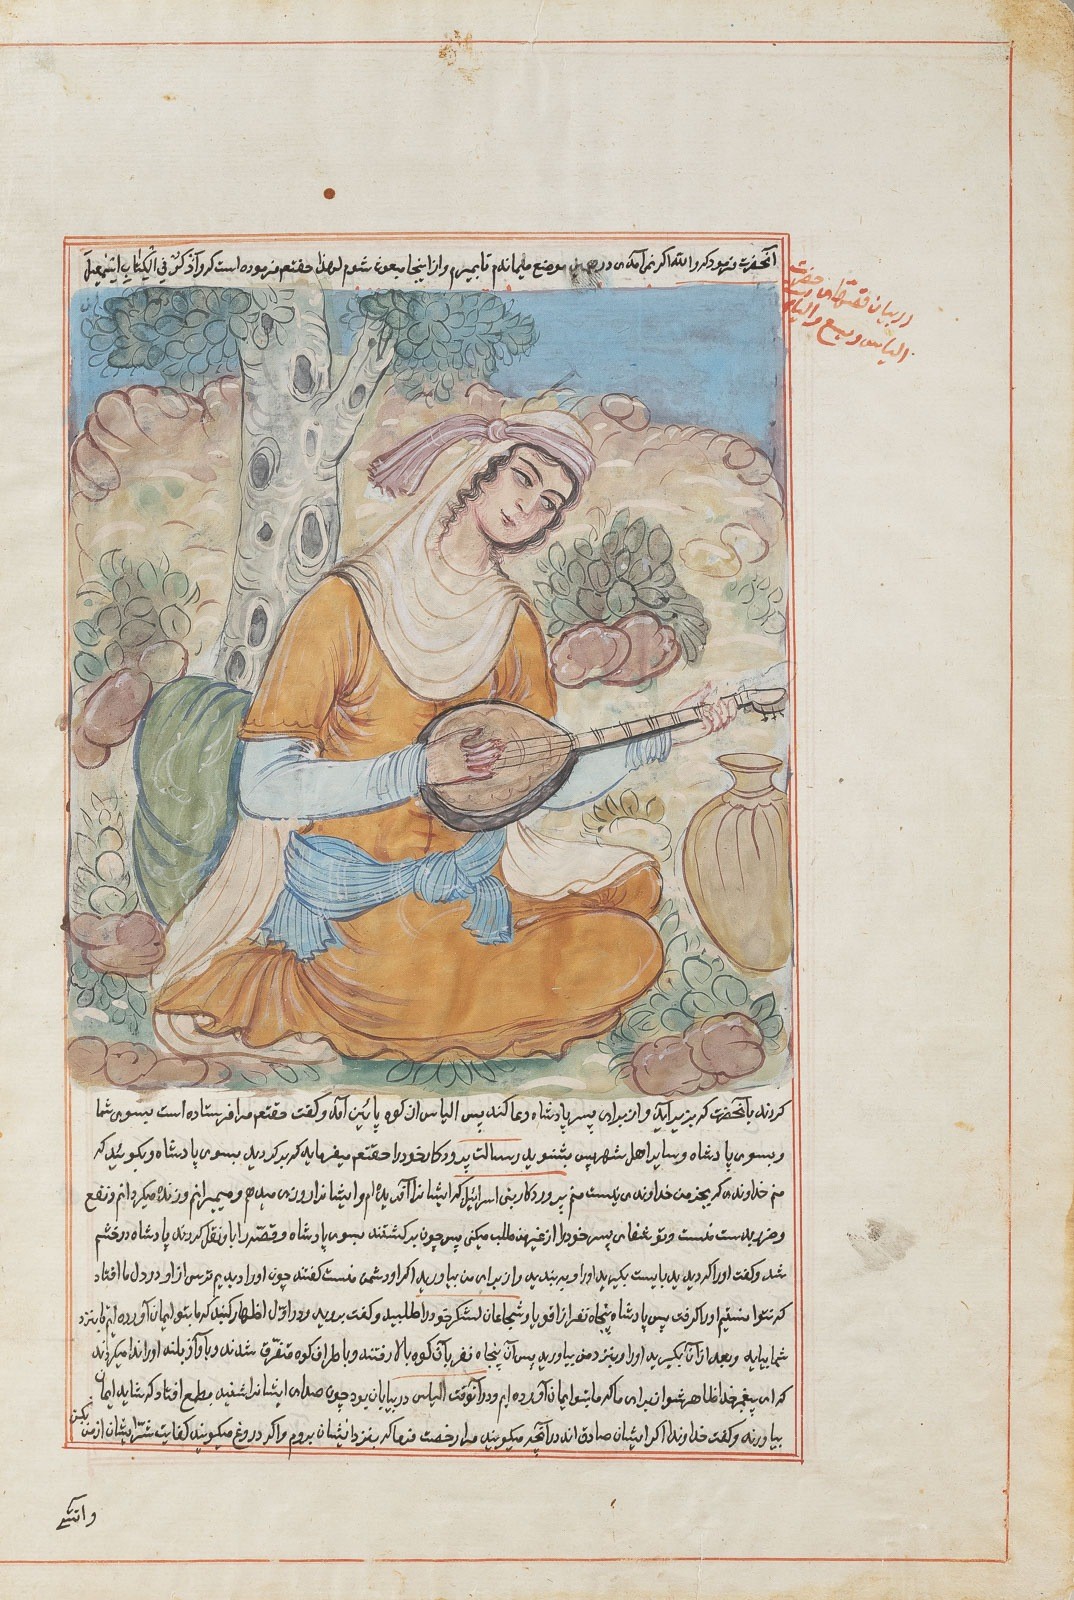 آنحضرت فرمود که والله اگر نمی‌آمدی در همین موضع میماندم تا بمیرم و از اینجا مبعوث شوم لهذا حقتعم فرموده است که واذکر فی الکتاب اسمعیل
در بیان قصهای حضرت
الیاس و یسع و الیا
کردند بآنحضرت که بزیر آید و از برای پسر پادشاه دعا کند پس الیاس از کوه پائین آمد و گفت حقتعم مرا فرستاده است بسوی شما
و بسوی پادشاه و سایر اهل شهر پس بشنوید رسالت پروردکار خود را حقتعم میفرماید که برکردید بسوی پادشاه و بکوئید که
منم خداوندی که بجز من خداوندی نیست منم پروردکار بنی اسرائیل که ایشانرا آفریده‌ام و ایشانرا روزی میدهم و میمیرانم و زنده میکردانم و نفع
و ضرر بدست منست و تو شفای پسر خود را از غیر من طلب میکنی پس چون برکشتند بسوی پادشاه و قصه را باو نقل کردند پادشاه در خشم
شد و کفت اورا که دیدید بایست بکیرید اورا و به بندید و از برای من بیاورید که او دشمن منست کفتند چون اورا دیدیم ترس از او در دل ما افتاد
که نتوانستیم اورا کرفت پس پادشاه پنجاه نفر از اقویا و شجاعان لشکر خود را طلبید و کفت بروید و در اول اظهار کنید که ما بتو ایمان آورده ایم تا بنزد
شما بیاید و بعد از آن بکیرید اورا و بنزد من بیاورید پس آن پنجاه نفر بآن کوه بالا رفتند و باطراف کوه متفرق شدند و بآواز بلند اورا ندا میکردند
که ای پیغمبر خدا ظاهر شو از برای ما که ما بتو ایمان آورده ایم و در آنوقت الیاس در بیابان بود چون صدای ایشانرا شنید بطمع افتاد که شاید ایمان
بیاورند و کفت خداوندا اکر ایشان صادق اند در آنچه میکویند مرا رخصت فرما که بنزد ایشان بروم و اکر دروغ میکویند کفایت شر ایشان از من بکن
و آتشی